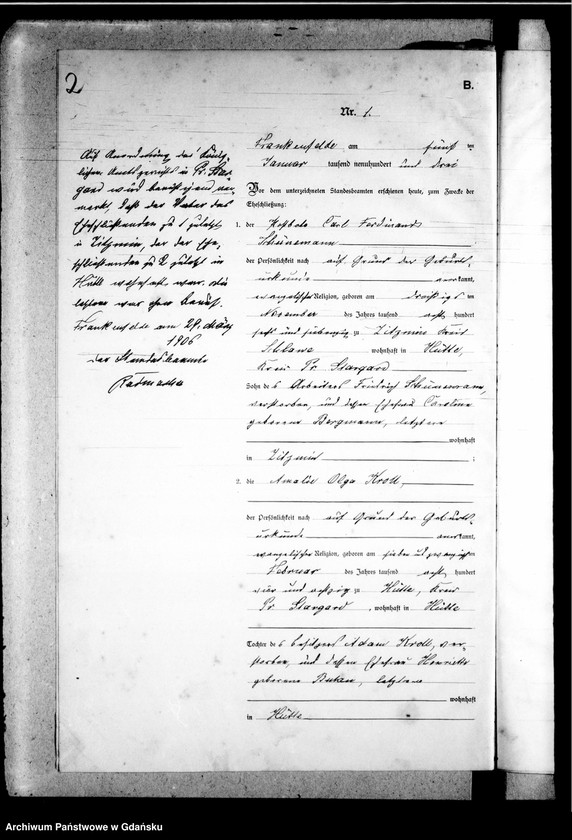 2
B.
Nr. 1.
Auf Anordnung des König-
lichen Amtsgerichts in Pr. Star-
gard wird berichtigend ver-
merkt, daß der Vater des
Eheschließenden zu 1 zuletzt
in Zitzmin, der der Ehe-
schließenden zu 2 zuletzt in
Hütte wohnhaft war. Die
letztere war ohne Beruf.
Frankenfelde am 29. März
1906
Der Standesbeamte
Frankenfelde am fünf ten
Januar tausend neunhundert und drei
Vor dem unterzeichneten Standesbeamten erschienen heute, zum Zwecke der
Eheschließung:
1. der Carl Ferdinand
Schünemann
der Persönlichkeit nach auf Grund der Geburts-
urkunde anerkannt,
evangelischer Religion, geboren am dreißigs ten
November des Jahres tausend acht hundert
sechs und siebenzig zu Zitzmin Kreis
Schlawe wohnhaft in Hütte,
Kreis Pr. Stargard
Sohn des Arbeiters Friedrich Schünemann,
verstorben, und dessen Ehefrau Caroline
geborene Bergmann, letztere
wohnhaft
in Zitzmin ;
2. die Amalie Olga Kroll
der Persönlichkeit nach auf Grund der Geburts-
urkunde anerkannt,
evangelischer Religion, geboren am sieben und zwanzigsten
Februar des Jahres tausend acht hundert
vier und achtzig zu Hütte, Kreis
Pr. Stargard , wohnhaft in Hütte
Tochter des Besitzers Adam Kroll, ver-
storben, und dessen Ehefrau Henriette
geborene letztere
wohnhaft
in Hütte
Archiwum Państwowe w Gdańsku